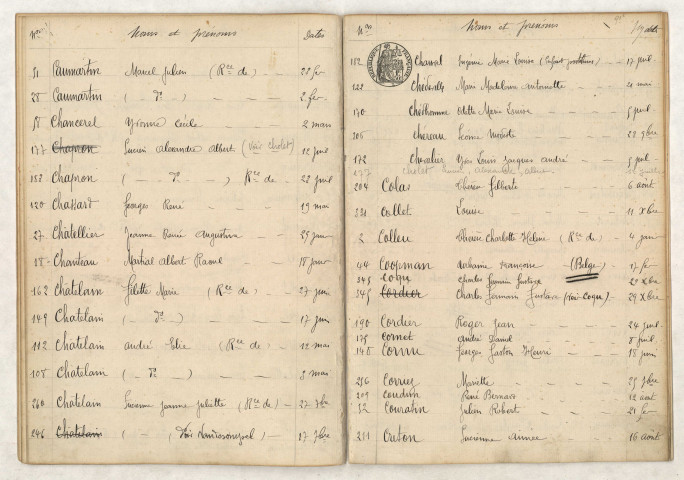 Nos Noms et prénoms Dates
31 Caumartin Marcel Julien (Rce de) 28 fév
28 Caumartin (- do -) 2 fév.
58 Chancerel Yvonne Cécile 2 mars
177 Chapron Lucien Alexandre Albert (Voir Cholet) 12 juil
188 Chapron (- do -) Rce de 28 juil
120 Chassard Georges René 19 mai
27 Châtellier Jeanne Renée Augustine 29 janv
18 Chanteau Martial Albert Raoul 18 janv
162 Chatelain Juliette Marie (Rce de) 27 juin
149 Chatelain (- do -) 17 juin
112 Chatelain André Elie (Rce de) 12 mai
108 Chatelain (- do -) 8 mai
260 Chatelain Suzanne Jeanne Juliette (Rce de) 27 7bre
246 Chatelain (- (Voir -) 17 7bre
Nos Noms et prénoms Dates
182 Chauval Eugénie Marie Louise 17 juil.
122 Chédeville Marie Madeleine Antoinette 21 mai
170 Odette Marie Louise 5 juil.
305 Chéreau Léonie Modeste 28 9bre
172 Chevalier Yves Louis Jacques André 5 juil
177 Cholet Lucien Alexandre Albert 12 juillet
204 Colas Thérèse Gilberte 6 août
331 Collet Louise 11 Xbre
2 Colleu Thérèse Charlotte Hélène (Rce de) 4 janv
44 Coopman Françoise (Belge) 17 fév
345 Coqu Charles Germain Gustave 29 Xbre
345 Cordier Charles Germain Gustave (Voir Coqu) 29 Xbre
190 Cordier Roger Jean 24 juil.
175 Cornet André Daniel 8 juil.
148 Cornu Georges Gaston Henri 18 juin
256 Correz Mariette 25 7bre
209 Coudrin René Bernard 12 août
52 Couratin Julien Robert 21 fév
211 Creton Lucienne Aimée 16 août